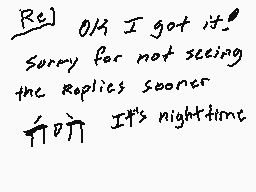 Re]
OK I got it!
Sorry for not seeing
the Replies sooner
It's nighttime